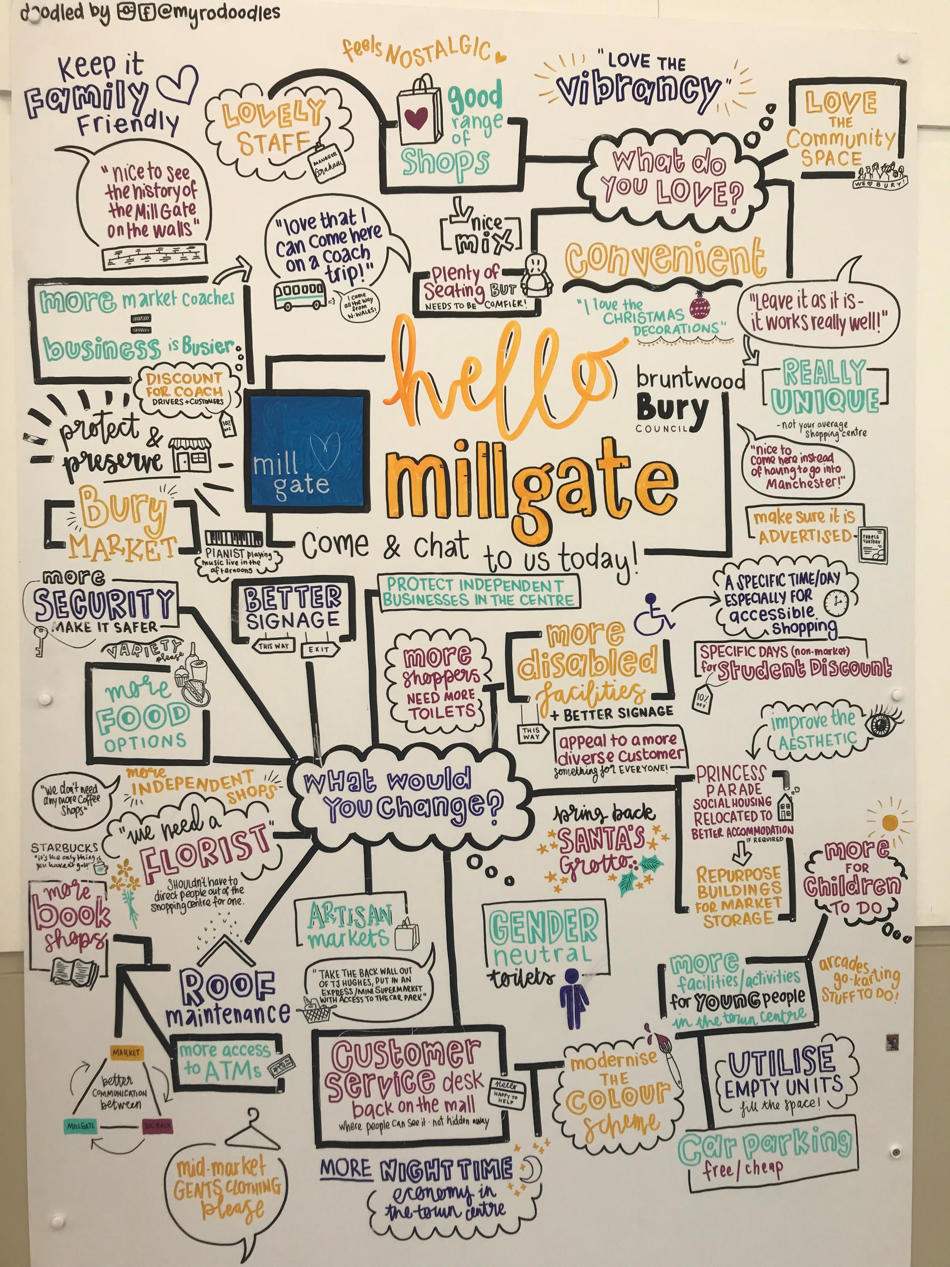 doodled by @myrodoodles
Keep it
Family
Friendly
LOVELY
STAFF
MANAGER
feels NOSTALGIC
good
range
of
Shops
"LOVE THE
vibrancy"
What do
you LOVE?
LOVE
THE
Community
SPACE
WE BURY!
"nice to see
the history of
the Mill Gate
on the walls"
"love that I
can come here
on a coach
trip!"
I came
all the way
from
N-WALES!
nice
mix
Plenty of
Seating BUT
NEEDS TO BE COMFIER!
Convenient
"I love the
CHRISTMAS
DECORATIONS"
"Leave it as it is-
it works really well!"
more market coaches
=
business is Busier
DISCOUNT
FOR COACH
DRIVERS + CUSTOMERS
hello
millgate
Come & chat
to us today!
mill
gate
bruntwood
Bury
COUNCIL
REALLY
UNIQUE
- not your average
shopping centre
"nice to
come here instead
of having to go into
Manchester!"
make sure it is
ADVERTISED
protect &
preserve
Bury
MARKET
PIANIST playing
music live in the
afternoons
more
SECURITY
MAKE IT SAFER
BETTER
SIGNAGE
THIS WAY
EXIT
PROTECT INDEPENDENT
BUSINESSES IN THE CENTRE
A SPECIFIC TIME/DAY
ESPECIALLY FOR
accessible
shopping
VARIETY
please
more
FOOD
OPTIONS
more
shoppers
NEED MORE
TOILETS
more
disabled
facilities
+ BETTER SIGNAGE
THIS
WAY
SPECIFIC DAYS (non-market)
for Student Discount
10%
OFF
improve the
AESTHETIC
appeal to a more
diverse customer
something for EVERYONE!
What would
you change?
"We don't need
any more Coffee
Shops"
more
INDEPENDENT
SHOPS
"we need a
FLORIST"
Shouldn't have to
direct people out of the
shopping centre for one.
STARBUCKS
bring back
SANTA'S
Grotto
PRINCESS
PARADE
SOCIAL HOUSING
RELOCATED TO
BETTER ACCOMMODATION
IF REQUIRED
REPURPOSE
BUILDINGS
FOR MARKET
STORAGE
more
FOR
Children
TO DO
more
book
shops
ARTISAN
markets
GENDER
neutral
toilets
ROOF
maintenance
"TAKE THE BACK WALL OUT
OF TJ HUGHES, PUT IN AN
EXPRESS/MINI SUPERMARKET
WITH ACCESS TO THE CAR PARK"
more
facilities/activities
for YOUNG people
in the town centre
arcades,
go-karting
STUFF TO DO!
more access
to ATMs
MARKET
better
COMMUNICATION
between
MILLGATE
Customer
Service desk
back on the mall
where people can see it - not hidden away
Hello
HAPPY TO
HELP
modernise
THE
COLOUR
scheme
UTILISE
EMPTY UNITS
fill the space!
Car parking
free/cheap
mid-market
GENTS CLOTHING
please
MORE NIGHT TIME
economy in
the town centre